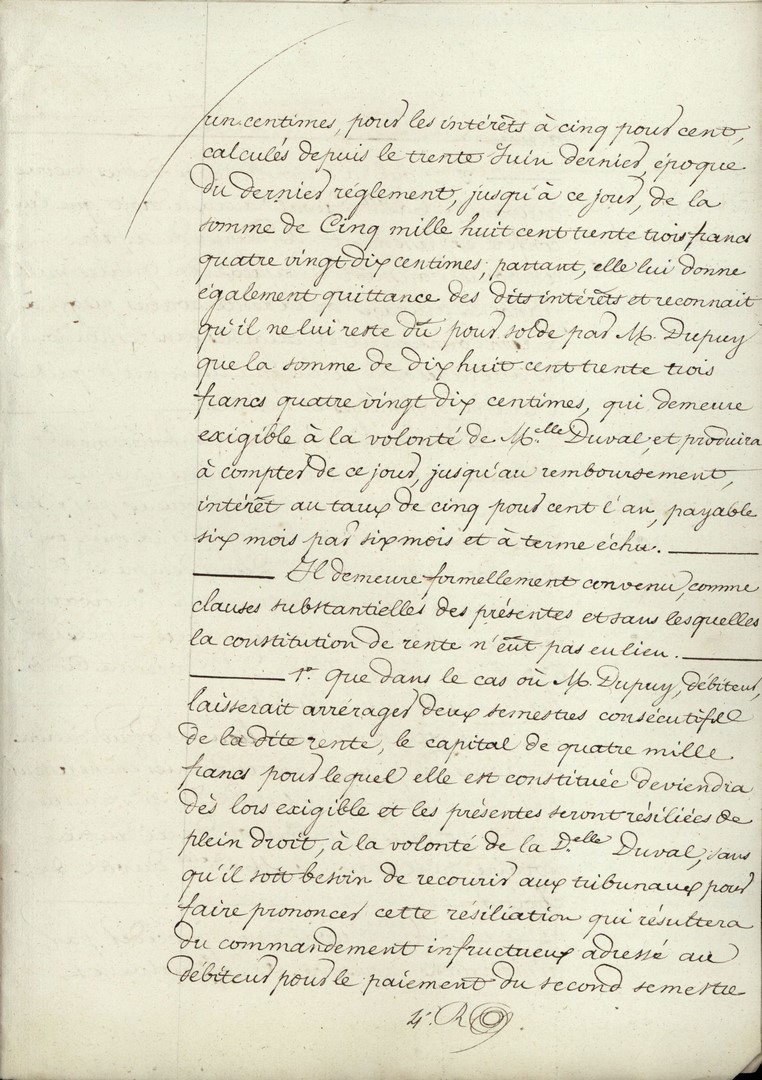 un centimes, pour les intérêts à cinq pour cent,
calculés depuis le trente Juin dernier, époque
du dernier réglement, jusqu'à ce jour, de la
somme de Cinq mille huit cent trente trois francs
quatre vingt dix centimes; partant, elle lui donne
également quittance des dits intérêts et reconnait
qu'il ne lui reste dû pour solde par M. Dupuy
que la somme de dix huit cent trente trois
francs quatre vingt dix centimes, qui demeure
exigible à la volonté de M.elle Duval, et produira
à compter de ce jour, jusqu'au remboursement,
intérêt au taux de cinq pour cent l'an, payable
six mois par six mois et à terme échu.
Il demeure formellement convenu, comme
clauses substantielles des présentes et sans lesquelles
la constitution de rente n'eût pas eu lieu.
1.° que dans le cas où M. Dupuy, débiteur,
laisserait arrérager deux semestres consécutifs
de la dite rente, le capital de quatre mille
francs pour lequel elle est constituée deviendra
dès lors exigible et les présentes seront résiliées de
plein droit, à la volonté de la D.elle Duval, sans
qu'il soit besoin de recourir aux tribunaux pour
faire prononcer cette résiliation qui résultera
du commandement infructueux adressé au
débiteur pour le paiement du second semestre
4.e R